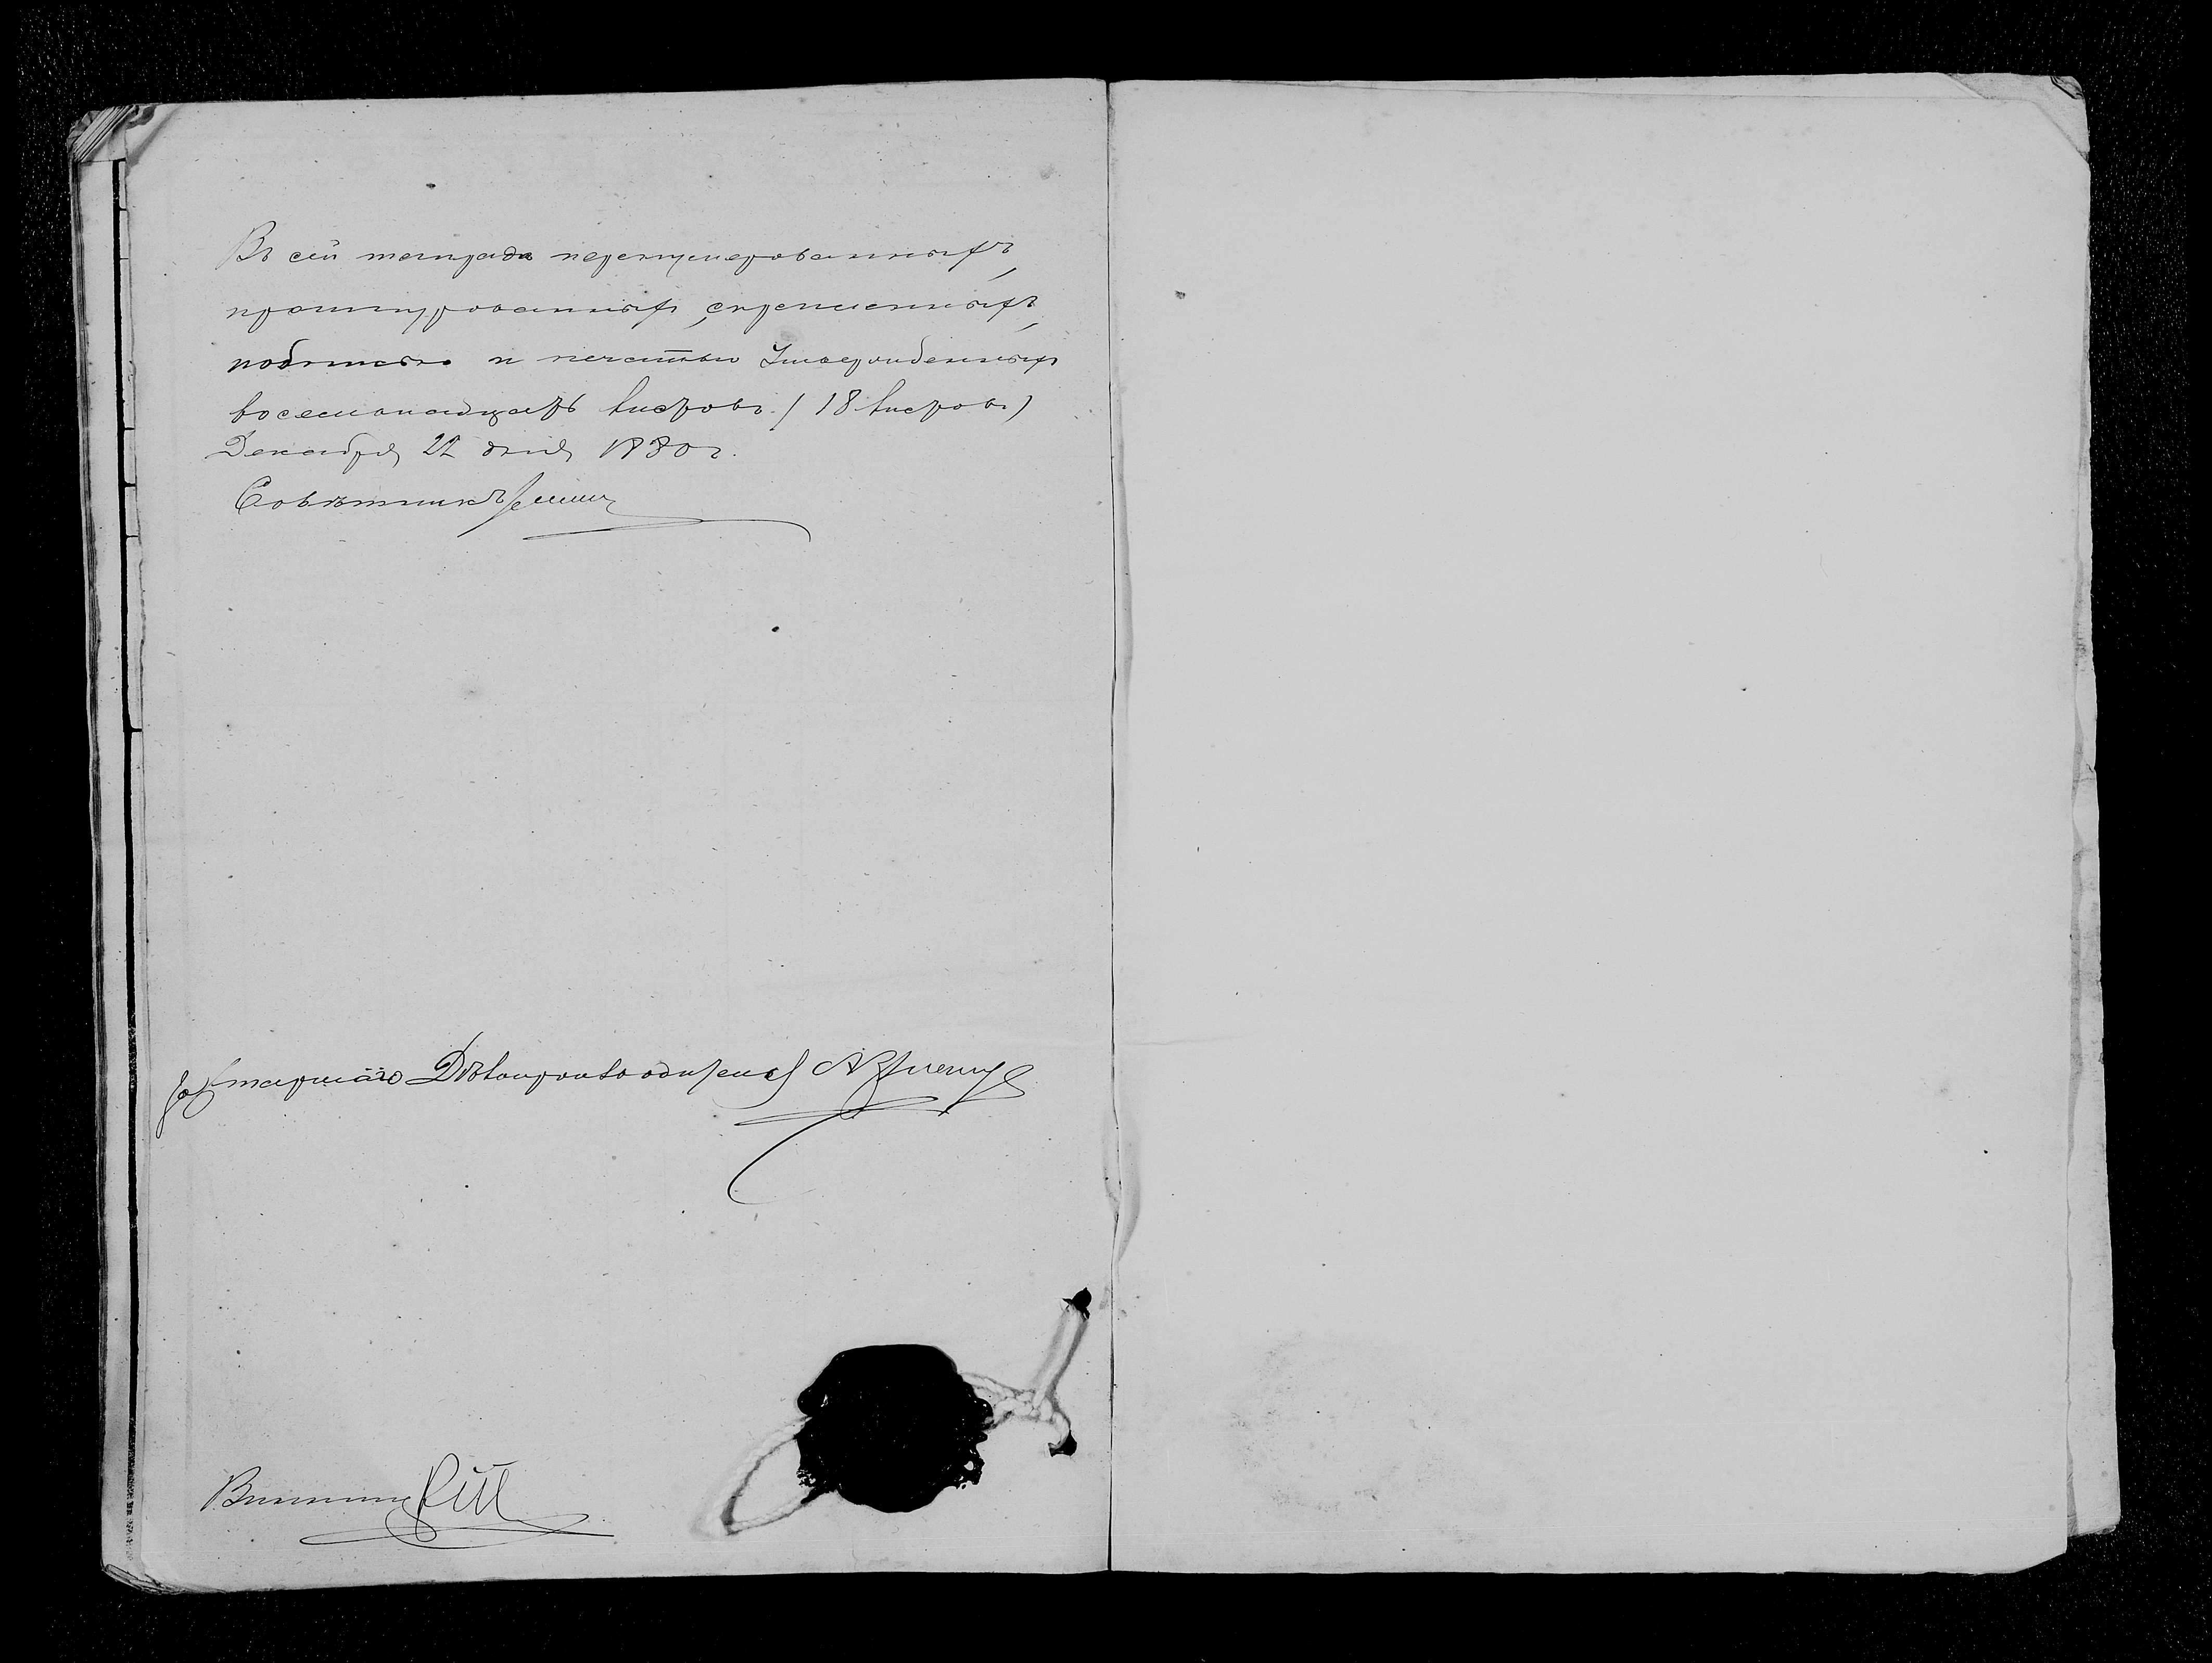 Въ сей тетрадѣ перенумерованныхъ,
прошнурованныхъ, скрепленныхъ,
подписью и печатью утвержденныхъ
восемнадцать листовъ. (18 листовъ)
Декабря 22 дня 1880 г.
Совѣтникъ
За Старшаго Дѣлопроизводителя